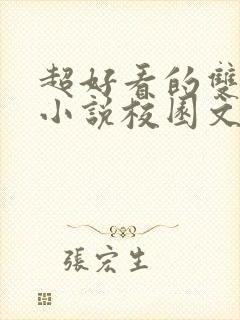 超好看的雙
小說校園文
張宏生